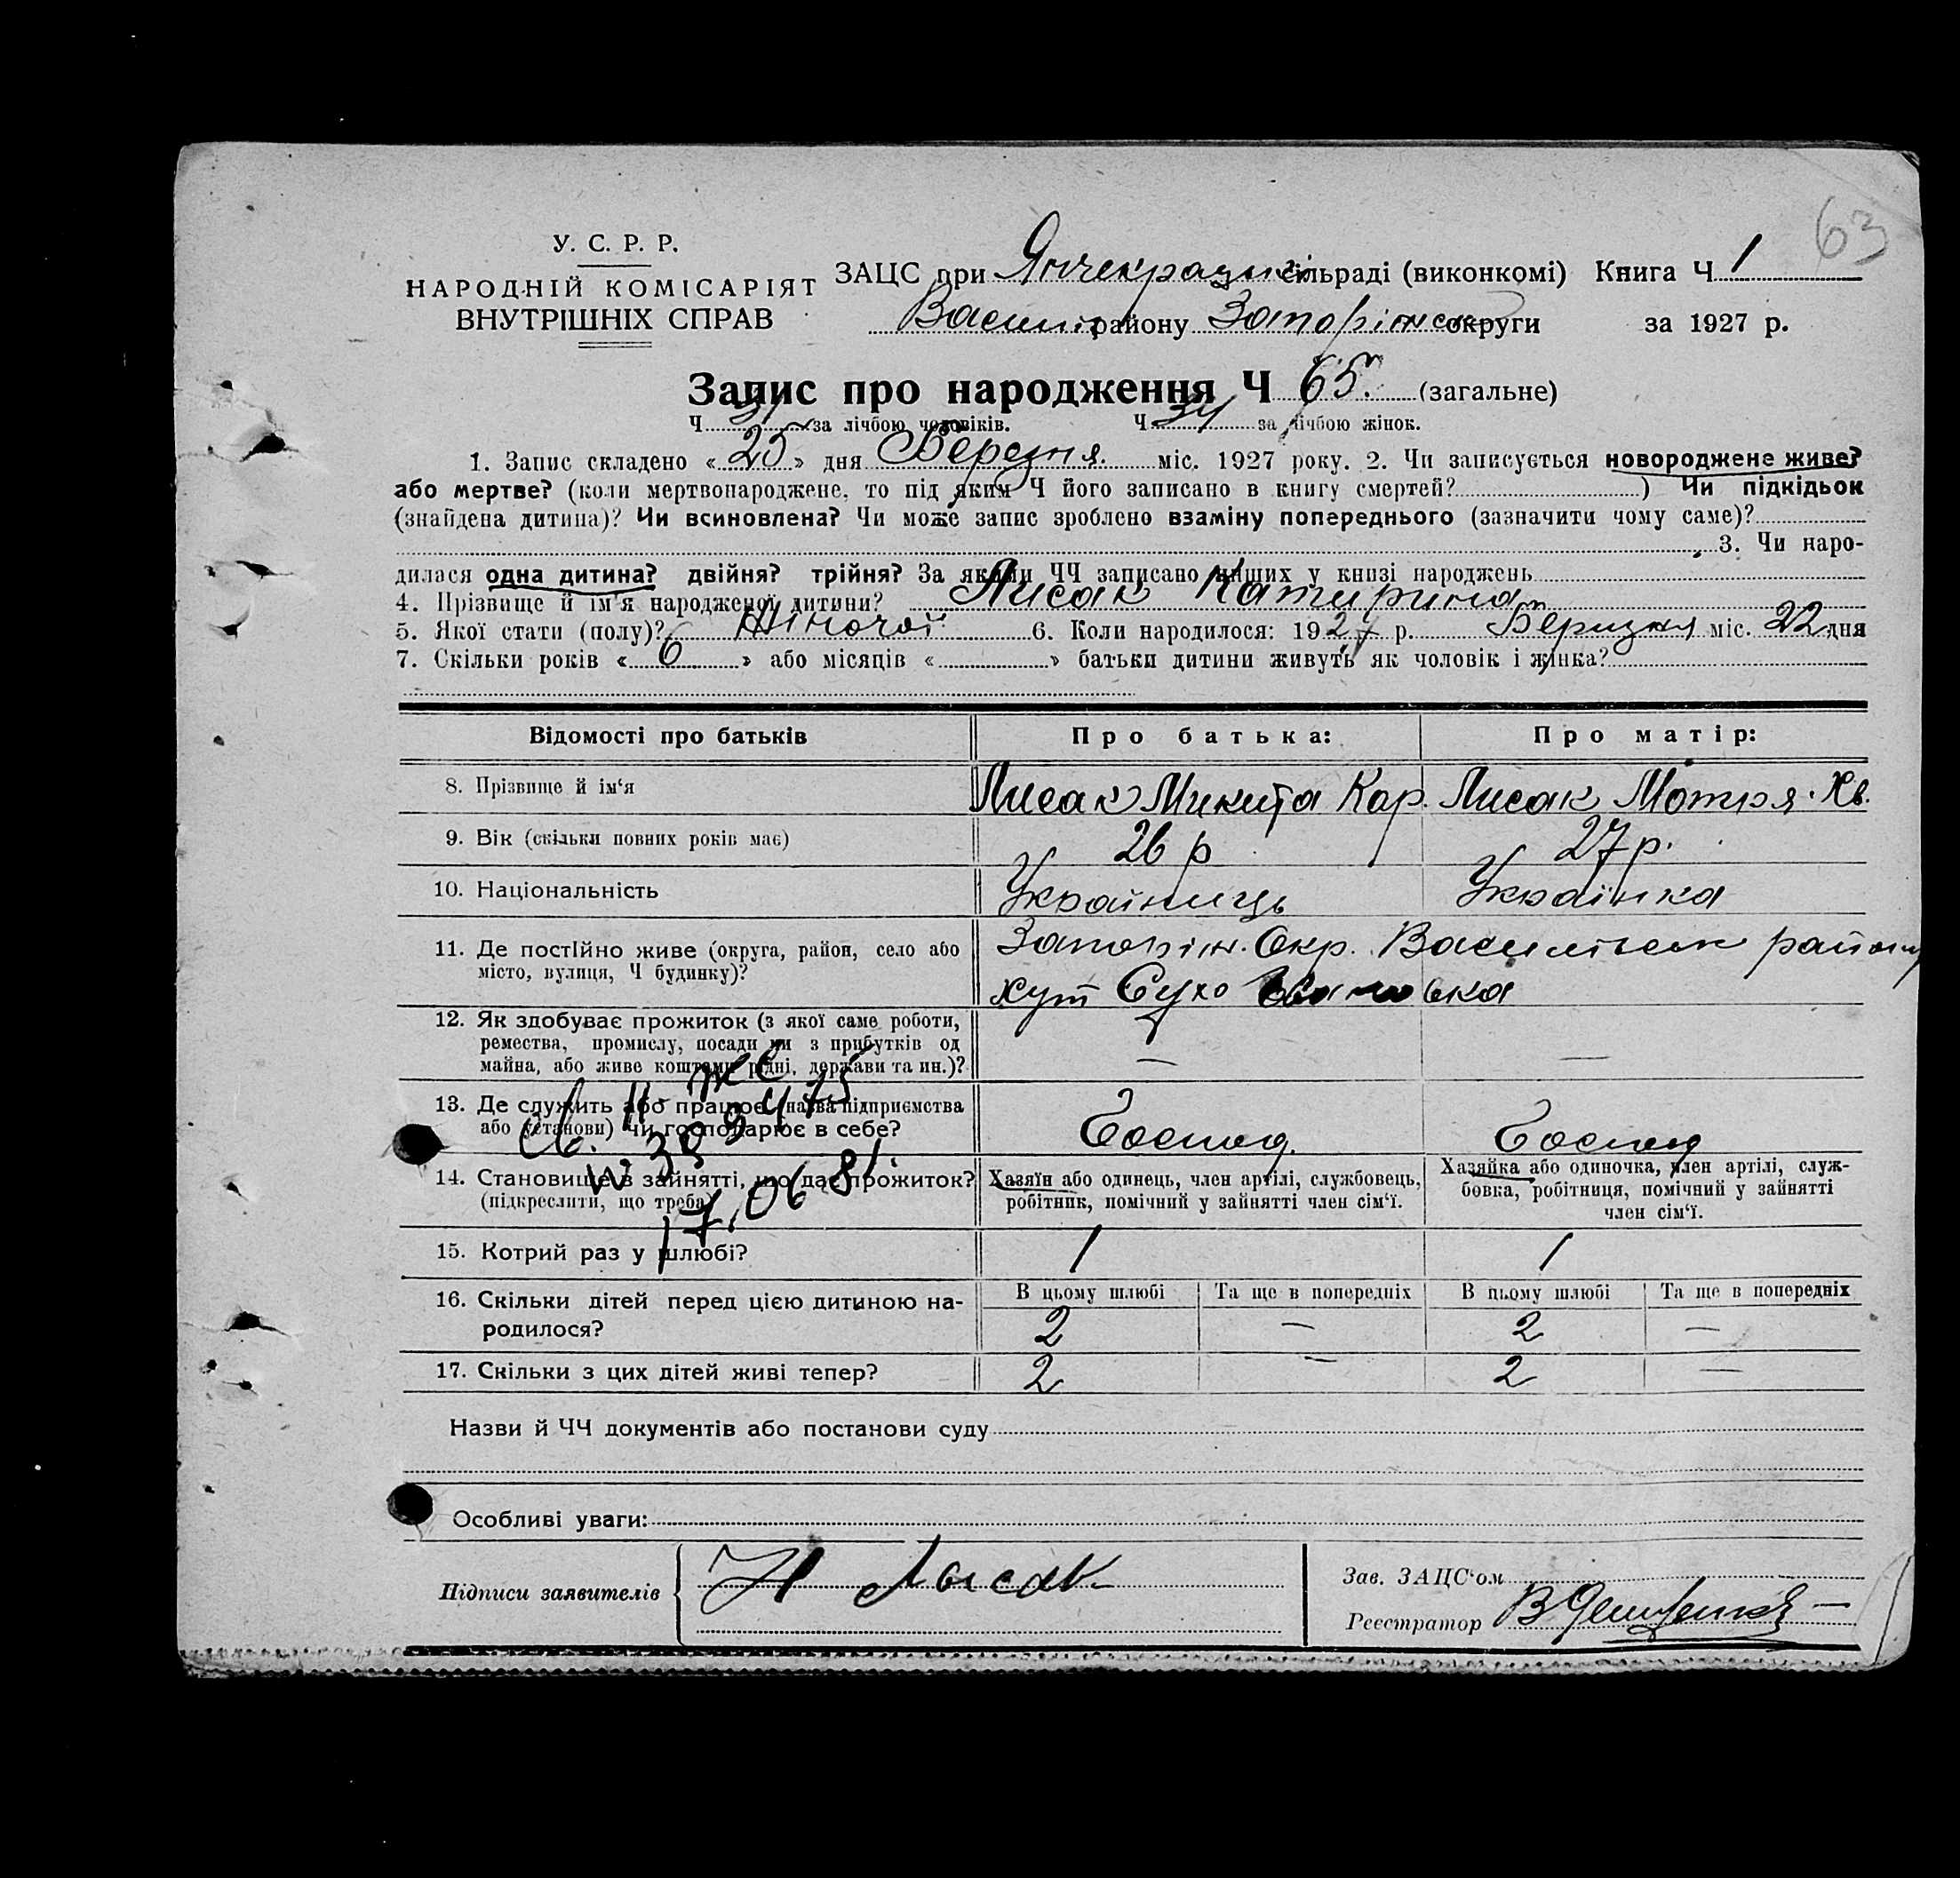 63
У. С. Р. Р.
НАРОДНІЙ КОМІСАРІЯТ
ВНУТРІШНІХ СПРАВ
ЗАЦС при Янчекрацькій сільраді (виконкомі) Книга Ч 1
Васил. району Запоріжськ округи за 1927 р.
Запис про народження Ч 65. (загальне)
Ч 31 за лічбою чоловіків. Ч 34 за лічбою жінок.
1. Запис складено « 25 » дня Березня. міс. 1927 року. 2. Чи записується новороджене живе?
або мертве? (коли мертвонароджене, то під яким Ч його записано в книгу смертей? ) Чи підкідьок
(знайдена дитина)? Чи всиновлена? Чи може запис зроблено взаміну попереднього (зазначити чому саме)?
3. Чи наро-
дилася одна дитина? двійня? трійня? За якими ЧЧ записано инших у книзі народжень
4. Прізвище й ім'я народженої дитини? Лисак Катирина
5. Якої стати (полу)? Жіночої 6. Коли народилося: 1927 р. Беризня міс. 22 дня
7. Скільки років « 6 » або місяців « » батьки дитини живуть як чоловік і жінка?
Відомості про батьків Про батька: Про матір:
8. Прізвище й ім'я Лисак Микита Кар. Лисак Мотря. Хв.
9. Вік (скільки повних років має) 26 р 27 р.
10. Національність Україниць Українка
11. Де постійно живе (округа, район, село або
місто, вулиця, Ч будинку)?
Запоріж. Окр. Васильевск району
хут Сухо Ивановка
12. Як здобуває прожиток (з якої саме роботи,
ремества, промислу, посади чи з прибутків од
майна, або живе коштами рідні, держави та ин.)? — —
13. Де служить або працює (назва підприємства
або установи) чи господарює в себе? Господ. Господ
св. II-ЖС
№ 389475
17.06 81.
14. Становище в зайнятті, що дає прожиток?
(підкреслити, що треба)
Хазяїн або одинець, член артілі, службовець,
робітник, помічний у зайнятті член сім'ї.
Хазяйка або одиночка, член артілі, служ-
бовка, робітниця, помічний у зайнятті
член сім'ї.
15. Котрий раз у шлюбі? 1 1
16. Скільки дітей перед цією дитиною на-
родилося?
В цьому шлюбі Та ще в попередніх В цьому шлюбі Та ще в попередніх
2 — 2 —
17. Скільки з цих дітей живі тепер? 2 — 2 —
Назви й ЧЧ документів або постанови суду
Особливі уваги:
Підписи заявителів Н Лысак
Зав. ЗАЦС'ом
Реєстратор